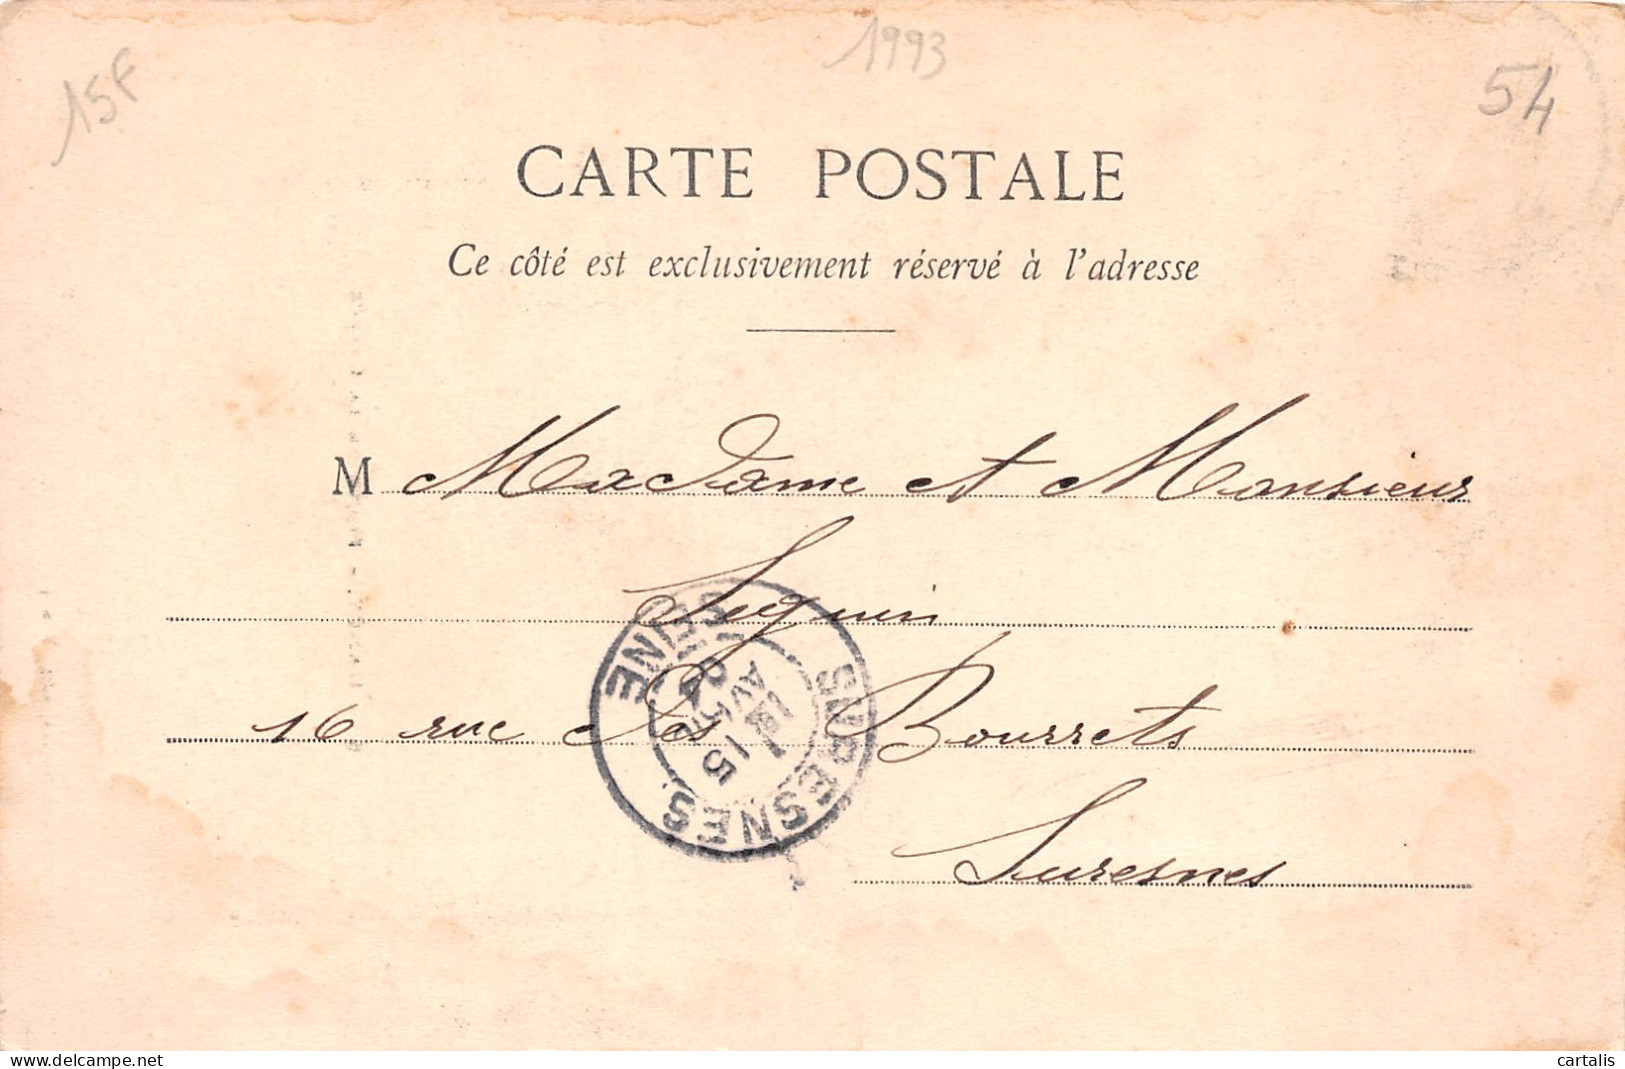 15F
1993
54
CARTE POSTALE
Ce côté est exclusivement réservé à l'adresse
M Madame et Monsieur
Seguin
16 rue des Bourrets
Suresnes
SURESNES SEINE
15
AVRIL
delcampe.net
cartalis